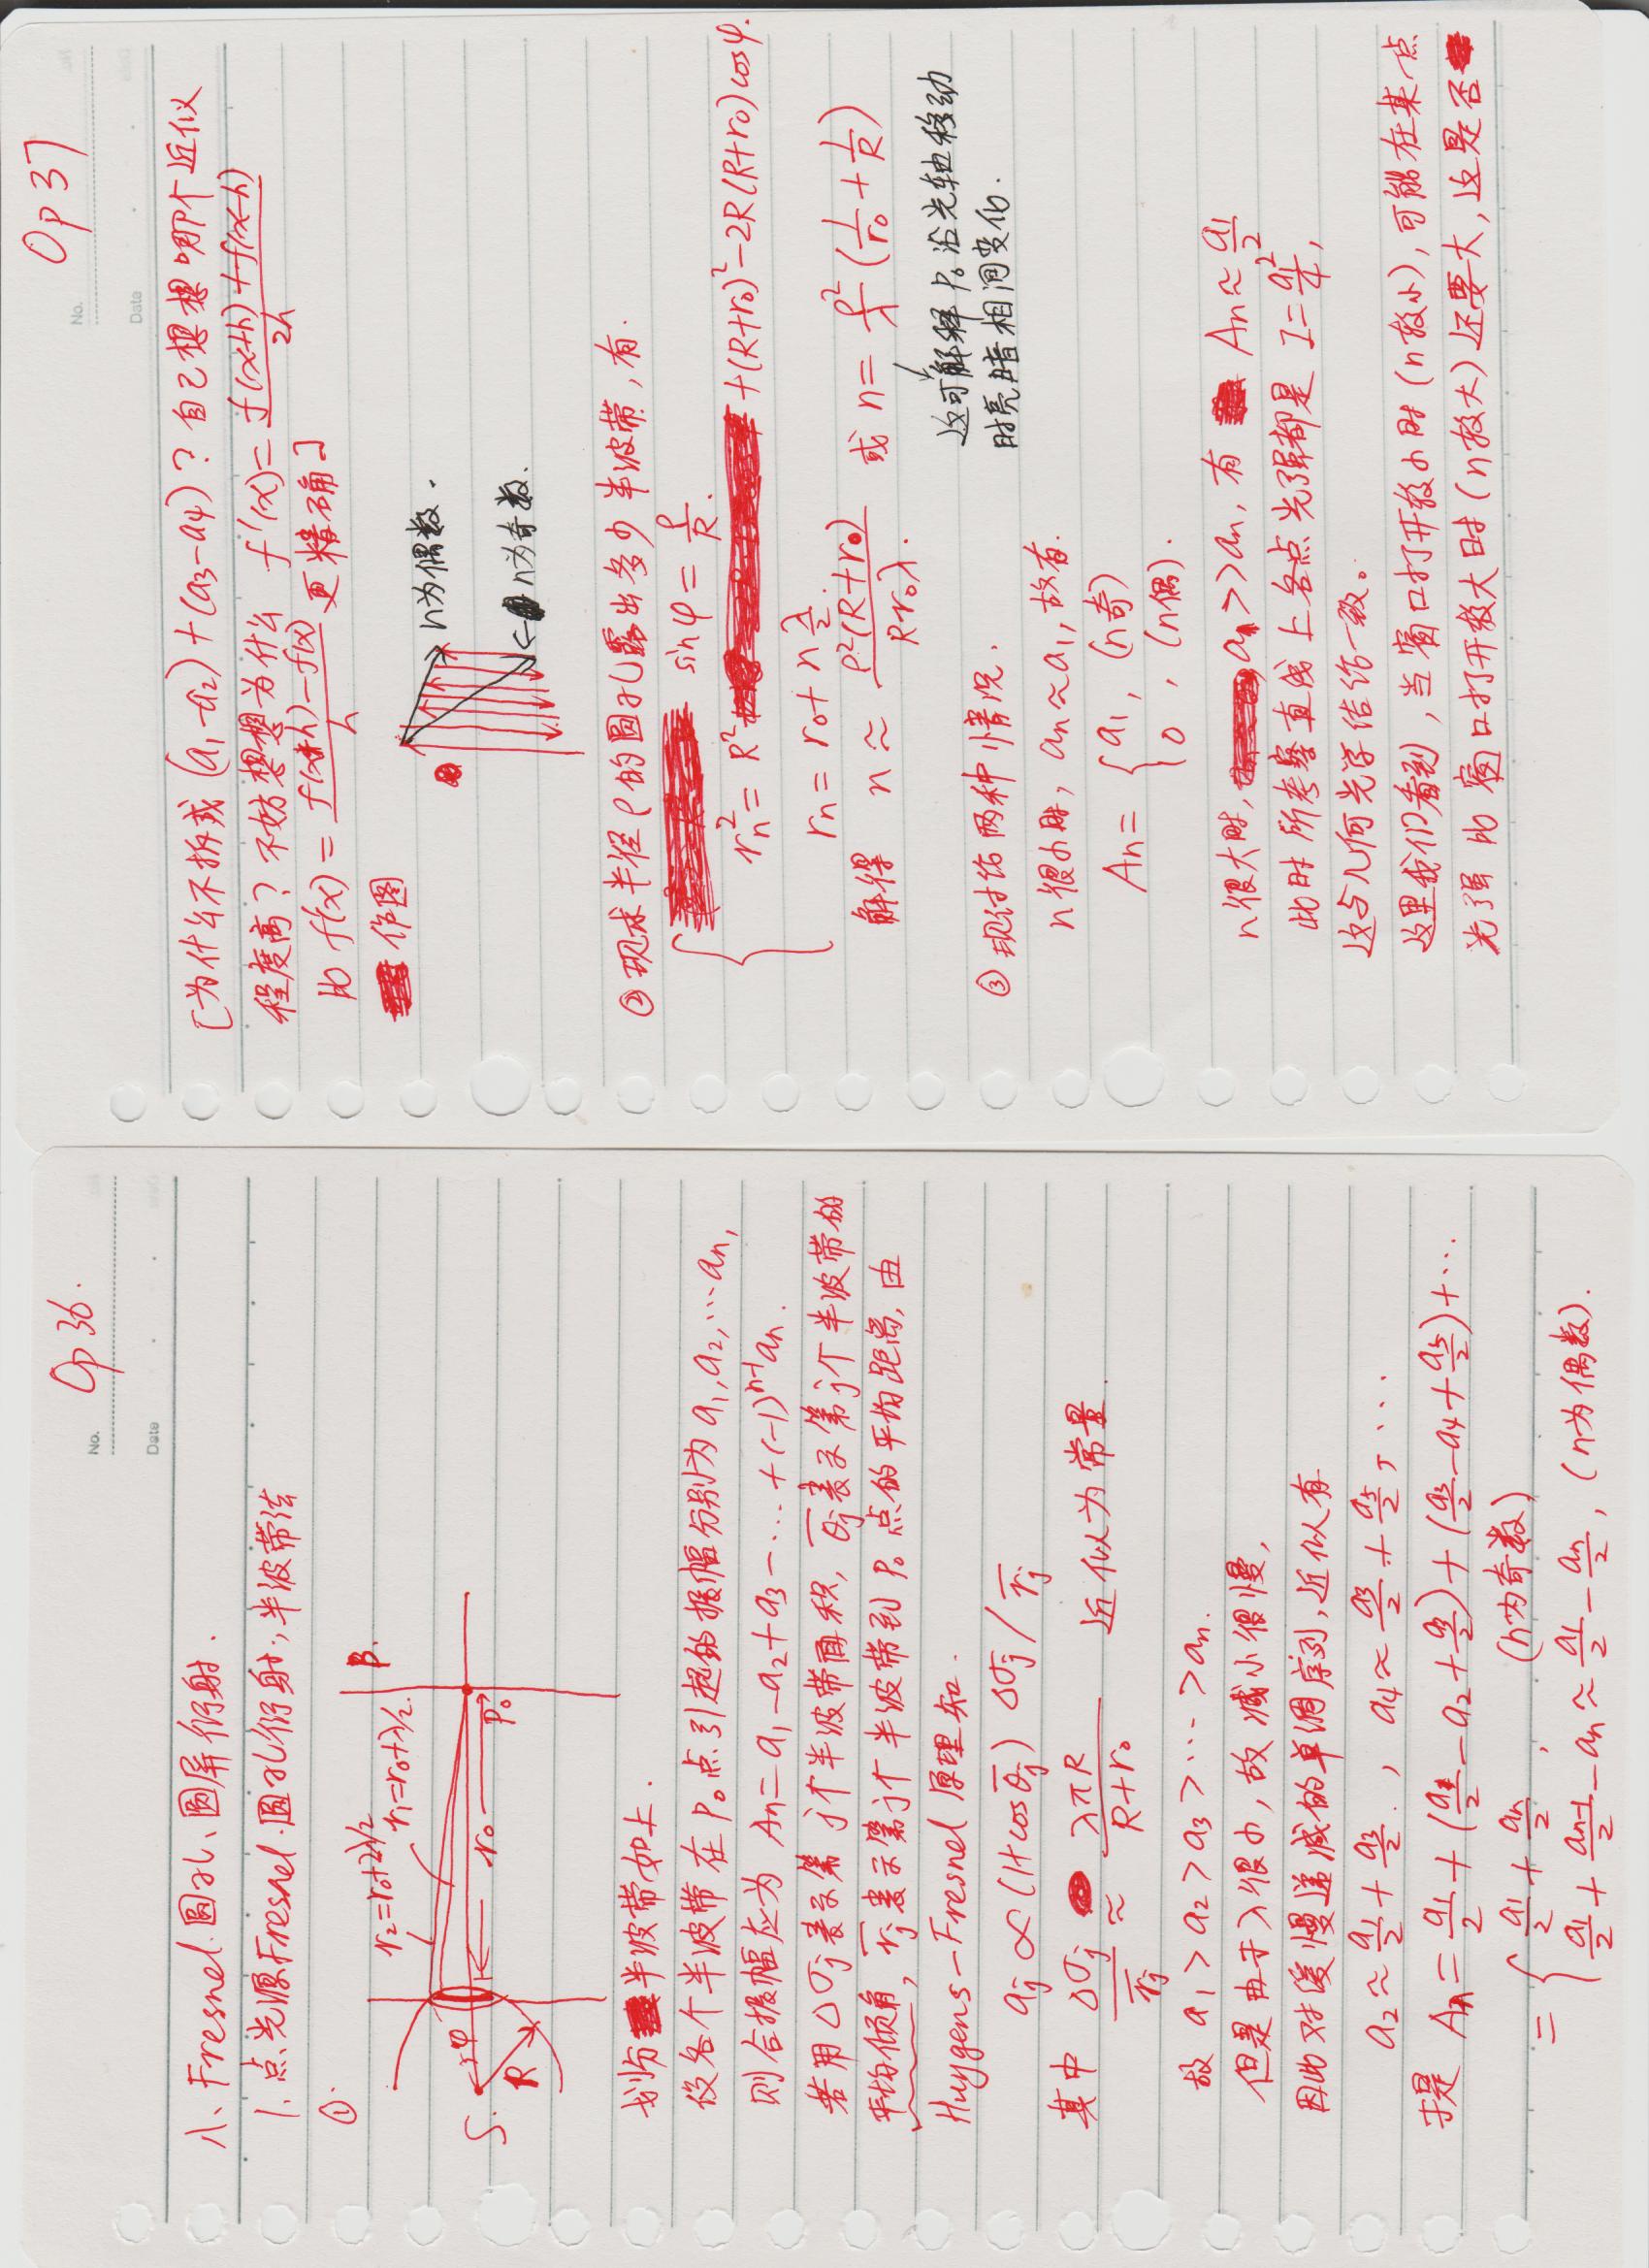 Op 36.
No.
Date
八、Fresnel.圆孔、圆屏衍射.
1. 点光源Fresnel.圆孔衍射，半波带法
①.
r₂=r₀+2λ/2
r₁=r₀+λ/2.
B.
S.
φ
R
r₀
P₀
划分半波带如上.
设各个半波带在P₀点引起的振幅分别为a₁,a₂,…aₙ,
则合振幅应为 Aₙ=a₁-a₂+a₃-…+(-1)ⁿ⁻¹aₙ.
若用Δσⱼ表示第j个半波带面积, θ̄ⱼ表示第j个半波带的
平均倾角, r̄ⱼ表示第j个半波带到P₀点的平均距离,由
Huygens-Fresnel 原理知.
aⱼ∝(1+cosθ̄ⱼ) Δσⱼ/r̄ⱼ
其中 Δσⱼ/r̄ⱼ ≈ λπR/(R+r₀) 近似为常量.
故 a₁>a₂>a₃>…>aₙ.
但是由于λ很小,故减小很慢,
因此对缓慢递减的单调序列,近似有
a₂≈a₁/2+a₃/2., a₄≈a₃/2+a₅/2,…
于是 Aₙ=a₁/2+(a₁/2-a₂+a₃/2)+(a₃/2-a₄+a₅/2)+…
={ a₁/2+aₙ/2, (n为奇数)
a₁/2+aₙ₋₁/2-aₙ≈a₁/2-aₙ/2, (n为偶数).
Op 37
No.
Date
[为什么不拆成(a₁-a₂)+(a₃-a₄)?自己想想哪个近似
程度高?不妨想想为什么 f'(x)=(f(x+h)+f(x-h))/2h
比 f'(x)=(f(x+h)-f(x))/h 更精确]
作图
n为偶数.
←n为奇数.
②现求半径ρ的圆孔露出多少半波带,有.
{ sinφ=ρ/R.
rₙ²=R²+(R+r₀)²-2R(R+r₀)cosφ.
rₙ=r₀+nλ/2.
解得 n≈ρ²(R+r₀)/Rr₀λ. 或 n=ρ²/λ(1/r₀+1/R)
这可解释P₀沿光轴移动
时亮暗相间变化.
③现讨论两种情况.
n很小时, aₙ≈a₁,故有.
Aₙ={ a₁, (n奇)
0, (n偶).
n很大时, a₁>>aₙ,有 Aₙ≈a₁/2
此时所考察直线上各点光强都是 I=a₁²/4,
这与几何光学结论一致。
这里我们看到,当窗口打开较小时(n较小),可能在某一点
光强比窗口打开较大时(n较大)还要大,这是否